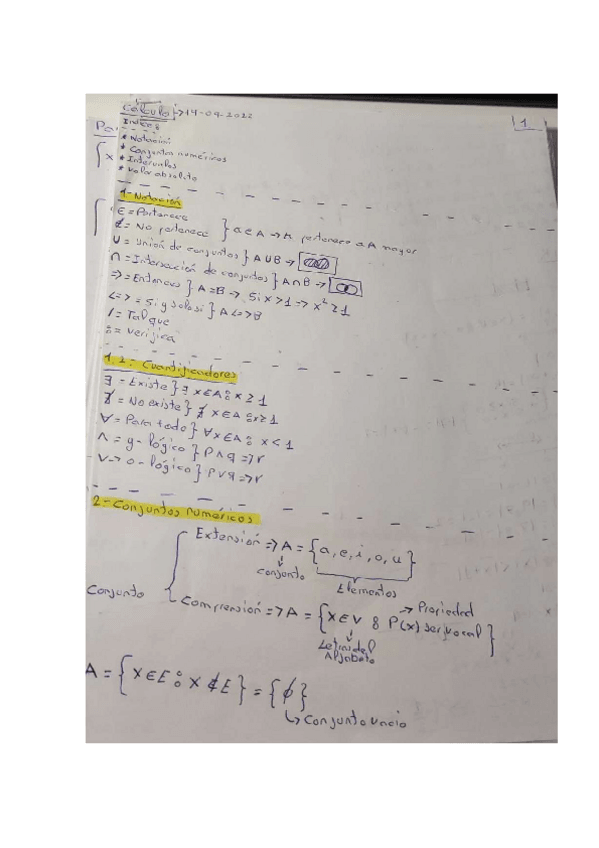 Cálculo → 14-09-2022
1
Indice:
* Notación
* Conjuntos numéricos
* Intervalos
* Valor absoluto
1- Notación
∈ = Pertenece
∉ = No pertenece } a ∈ A → pertenece a A mayor
∪ = Unión de conjuntos } A ∪ B →
∩ = Intersección de conjuntos } A ∩ B →
=> = Entonces } A = B → Si x > 1 => x² ≥ 1
<=> = Si y solo si } A <=> B
/ = Tal que
: = Verifica
1.2- Cuantificadores
∃ = Existe } ∃ x ∈ A : x ≥ 1
∄ = No existe } ∄ x ∈ A : x ≥ 1
∀ = Para todo } ∀ x ∈ A : x < 1
∧ = y - lógico } P ∧ q => r
∨ → o - lógico } P ∨ q => r
2- Conjuntos numéricos
Extensión => A = {a, e, i, o, u}
conjunto
Elementos
Conjunto
→ Propiedad
Comprensión => A = {x ∈ V 8 P(x) ser vocal}
Letra del
Alfabeto
A = {x ∈ E : x ∉ E} = {ϕ}
↳ Conjunto vacio